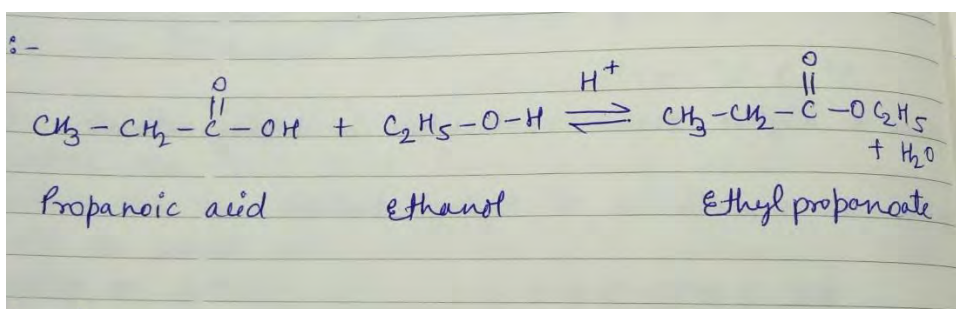 :-
O O
|| H+ ||
CH3 - CH2 - C - OH + C2H5 - O - H ⇌ CH3 - CH2 - C - OC2H5
+ H2O
Propanoic acid ethanol Ethyl propanoate